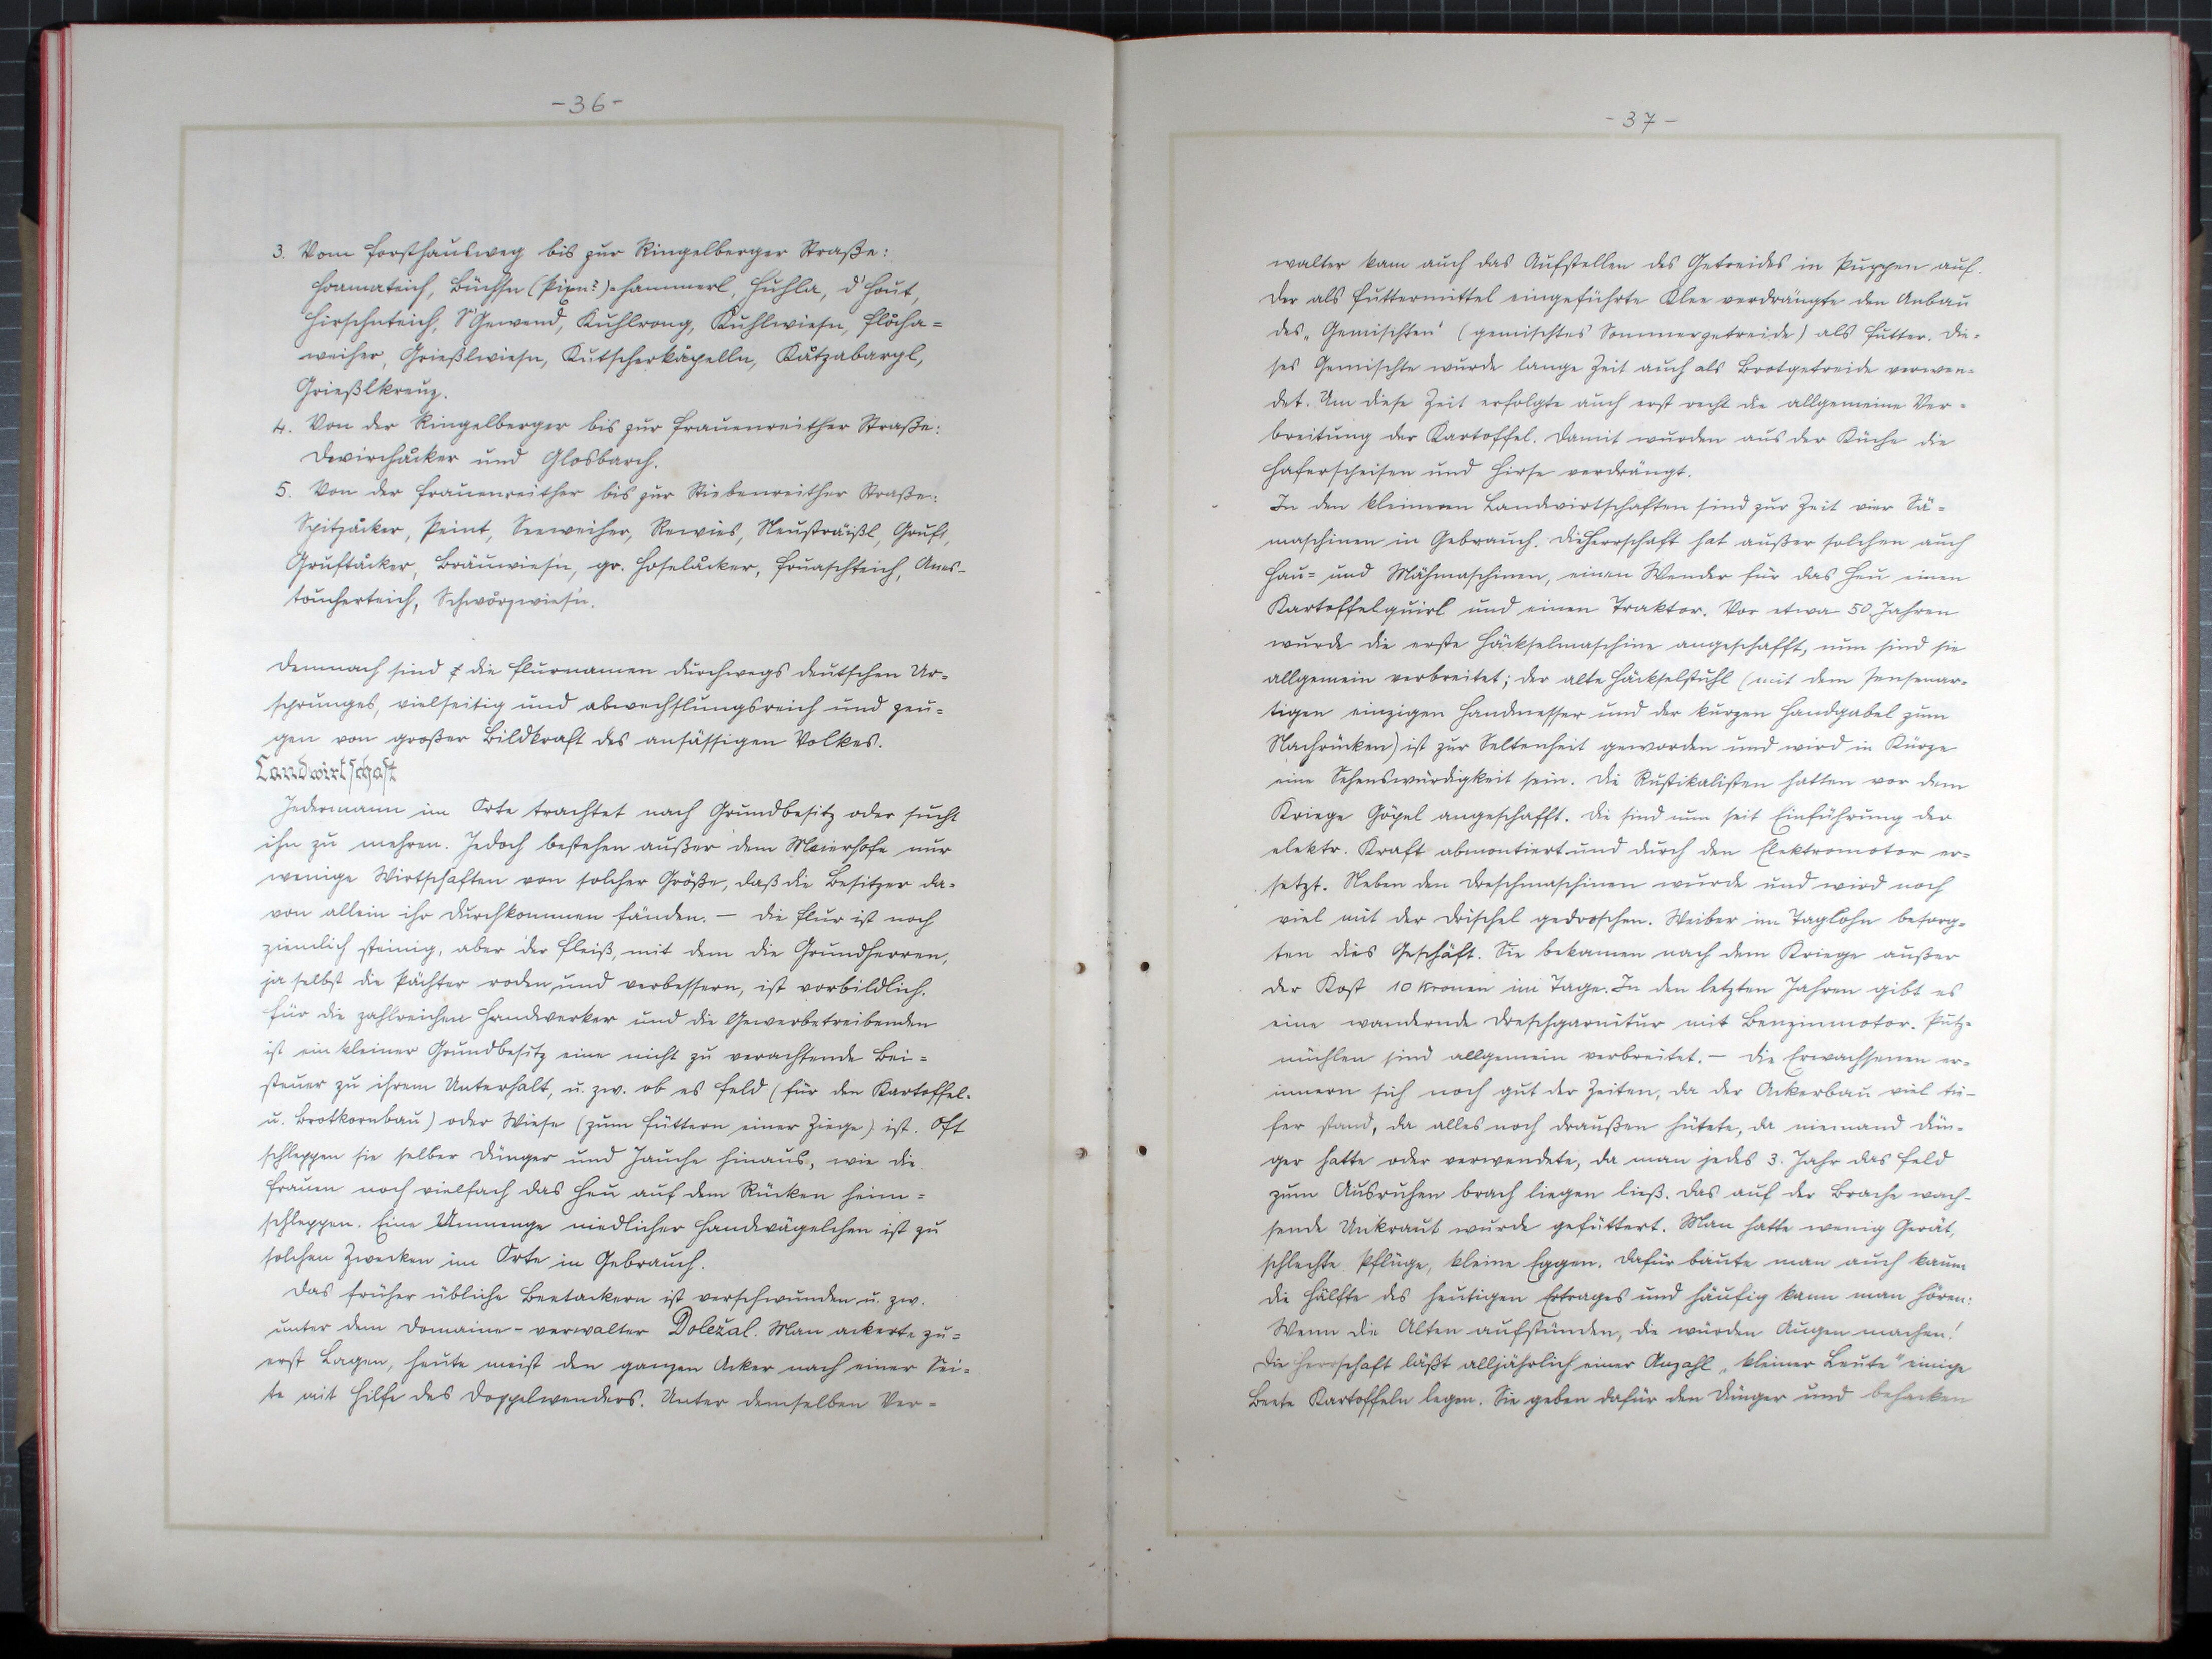 -36-
3. Vom Forsthausweg bis zur Ringelberger Straße:
Hoamateich, Büchsn (Pixn?)-hammerl, Huhla, d'Hout,
Hirschnteich, 's Gewend, Kuhlrong, Kuhlwiesn, Flåcha=
weiher, Grießlwiesn, Kutscherkåpelln, Kåtzabargl,
Grießlkreuz.
4. Von der Ringelberger bis zur Frauenreither Straße:
Dewirchåcker und Glosbarch.
5. Von der Frauenreither bis zur Tiebenreither Straße:
Spitzåcker, Peint, Seeweiher, Rewies, Neusträißl, Gruft,
Gruftåcker, Bräuwies'n, gr. Hoselåcker, Fruaschteich, Aues-
toucherteich, Schwörzwies'n.
Demnach sind die Flurnamen durchwegs deutschen Ur-
sprunges, vielseitig und abwechslungsreich und zeu-
gen von großer Bildkraft des ansässigen Volkes.
Landwirtschaft
Jedermann im Orte trachtet nach Grundbesitz oder sucht
ihn zu mehren. Jedoch bestehen außer dem Meierhofe nur
wenige Wirtschaften von solcher Größe, daß die Besitzer da-
von allein ihr Durchkommen fänden. — Die Flur ist noch
ziemlich steinig, aber der Fleiß, mit dem die Grundherren,
ja selbst die Pächter roden, und verbessern, ist vorbildlich.
Für die zahlreichen Handwerker und die Gewerbetreibenden
ist ein kleiner Grundbesitz eine nicht zu verachtende Bei=
steuer zu ihrem Unterhalt, u. zw. ob es Feld (für den Kartoffel-
u. Brotkornbau) oder Wiese (zum Füttern einer Ziege) ist. Oft
schleppen sie selber Dünger und Jauche hinaus, wie die
Frauen noch vielfach das Heu auf dem Rücken heim=
schleppen. Eine Unmenge niedlicher Handwägelchen ist zu
solchen Zwecken im Orte in Gebrauch.
Das früher übliche Beetackern ist verschwunden u. zw.
unter dem Domaine-verwalter Doležal. Man ackerte zu=
erst Lagen, heute meist den ganzen Acker nach einer Sei-
te mit Hilfe des Doppelwenders. Unter demselben Ver=
-37-
walter kam auch das Aufstellen des Getreides in Puppen auf.
Der als Futtermittel eingeführte Klee verdrängte den Anbau
des „Gemischten" (gemischtes Sommergetreide) als Futter. Die-
ses Gemischte wurde lange Zeit auch als Brotgetreide verwen-
det. Um diese Zeit erfolgte auch erst recht die allgemeine Ver-
breitung der Kartoffel. Damit wurden aus der Küche die
Haferspeisen und Hirse verdrängt.
In den kleineren Landwirtschaften sind zur Zeit vier Sä-
maschinen in Gebrauch. Die Herrschaft hat außer solchen auch
Hau= und Mähmaschinen, einen Wender für das Heu einen
Kartoffelquirl und einen Traktor. Vor etwa 50 Jahren
wurde die erste Häckselmaschine angeschafft, nun sind sie
allgemein verbreitet; der alte Häckselstuhl (mit dem sensenar-
tigen einzigen Handmesser und der kurzen Handgabel zum
Nachrücken) ist zur Seltenheit geworden und wird in Kürze
eine Sehenswürdigkeit sein. Die Rustikalisten hatten vor dem
Kriege Göpel angeschafft. Die sind nun seit Einführung der
elektr. Kraft abmontiert und durch den Elektromotor er-
setzt. Neben den Dreschmaschinen wurde und wird noch
viel mit der Drischel gedroschen. Weiber im Taglohn besorg-
ten dies Geschäft. Sie bekamen nach dem Kriege außer
der Kost 10 Kronen im Tage. In den letzten Jahren gibt es
eine wandernde Dreschgarnitur mit Benzinmotor. Putz-
mühlen sind allgemein verbreitet. — Die Erwachsenen er-
innern sich noch gut der Zeiten, da der Ackerbau viel tie-
fer stand, da alles noch draußen hütete, da niemand Dün-
ger hatte oder verwendete, da man jedes 3. Jahr das Feld
zum Ausruhen brach liegen ließ. Das auf der Brache wach-
sende Unkraut wurde gefüttert. Man hatte wenig Gerät,
schlechte Pflüge, kleine Eggen. Dafür baute man auch kaum
die Hälfte des heutigen Ertrages und häufig kann man hören:
Wenn die Alten aufstünden, die würden Augen machen!
Die Herrschaft läßt alljährlich einer Anzahl „kleiner Leute" einige
Beete Kartoffeln legen. Sie geben dafür den Dünger und behacken